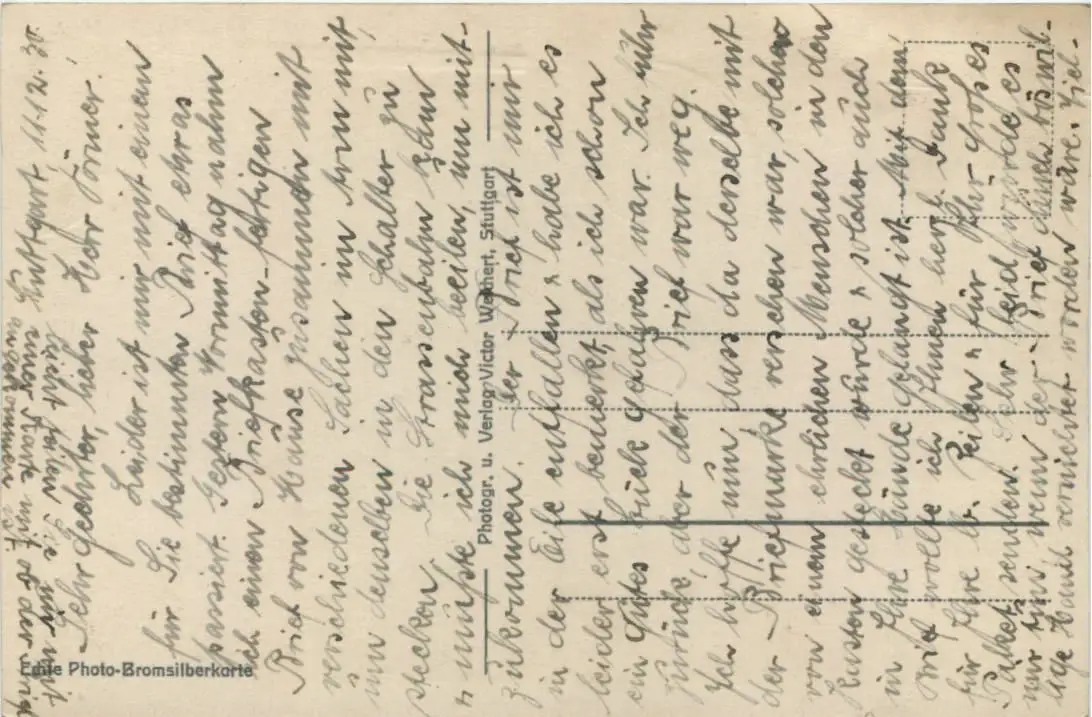 Stuttgart, 11.12.30.
Sehr geehrter, lieber Herr Jörner!
Leider ist mir mit einem
für Sie bestimmten Brief etwas
passiert. Gestern Vormittag nahm
ich einen Briefkasten-fertigen
Brief von Hause zusammen mit
verschiedenen Sachen im
um denselben in den Schalter zu
stecken. Die Strassenbahn kam
u. mußte ich mich beeilen, um mit-
zukommen. Der Brief ist mir
in der Eile entfallen u. habe ich es
leider erst bemerkt, als ich schon
ein Gutes Stück gefahren war. Ich fuhr
zurück, aber der Brief war weg.
Ich hoffe nun, dass da derselbe mit
der Briefmarke versehen war, solcher
von einem ehrlichen Menschen in den
Kasten gesteckt wurde u. solcher auch
in Ihre Hände gelangt ist. Mit dem
Brief wollte ich Ihnen herzl. Dank
für Ihre lb. Zeilen u. für Ihr großes
Paket senden. Sehr leid würde es
mir tun, wenn der Brief durch böswil-
lige Hand vernichtet worden wäre. Viel-
leicht teilen Sie mir mit
einer Karte mit, ob der Brief
angekommen ist.
Photogr. u. Verlag Victor Weichert, Stuttgart
Echte Photo-Bromsilberkarte